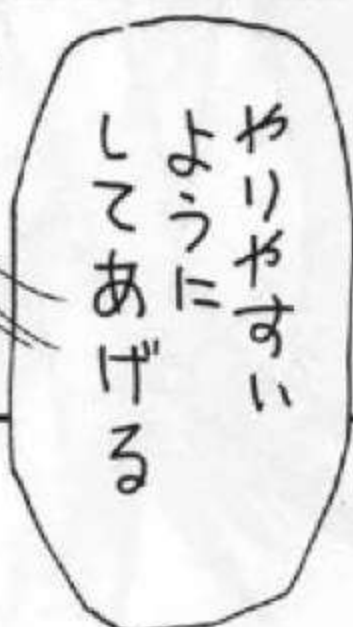 やりやすい
ように
してあげる